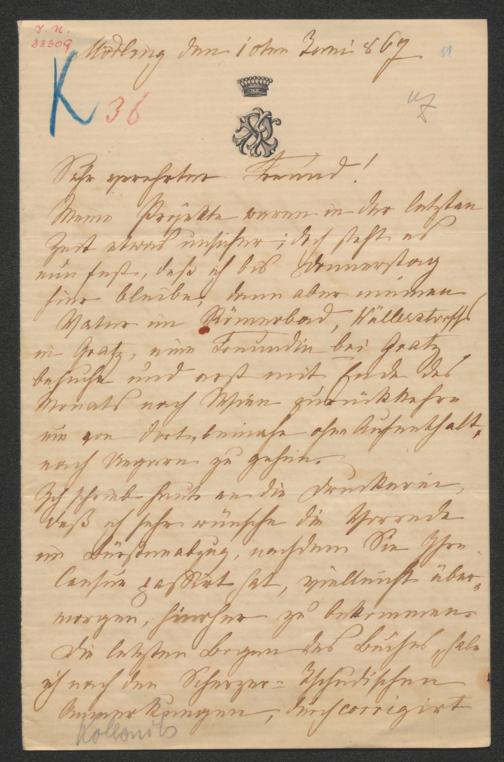 J. N.
83309
Mödling den 10ten Juni 867
K 36
Sehr verehrter Freund!
Meine Projekte waren in der letzten
Zeit etwas unsicher; doch steht es
nun fest, daß ich bis Donnerstag
hier bleibe, dann aber meinen
Vater im Römerbad, Wüllerstorffs
in Gratz, eine Freundin bei Gratz
besuche und erst mit Ende des
Monats nach Wien zurückkehre
um von dort, beinahe ohne Aufenthalt,
nach Ungarn zu gehen.
Ich schrieb heute an die Druckerei,
daß ich sehr wünsche die Vorrede
im Bürstenabzug, nachdem Sie Ihre
Censur passirt hat, vielleicht über-
morgen, hierher zu bekommen.
Die letzten Bogen des Buches, habe
ich nach den Scherzer-Tschudischen
Anmerkungen, durchcorrigirt
Kollonits